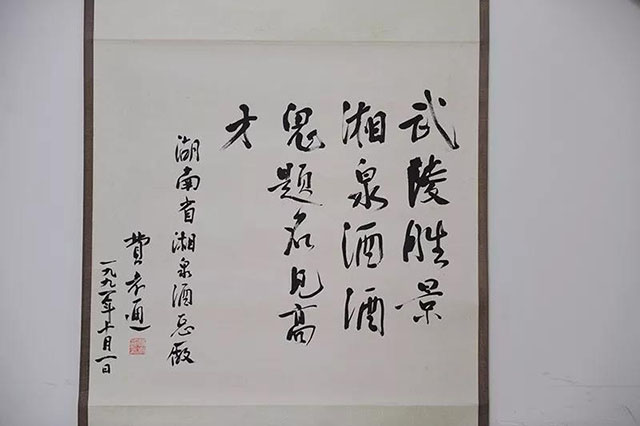 武陵胜景
湘泉酒酒
鬼题名见高
才
湖南省湘泉酒总厰
费孝通
一九九一年十月一日